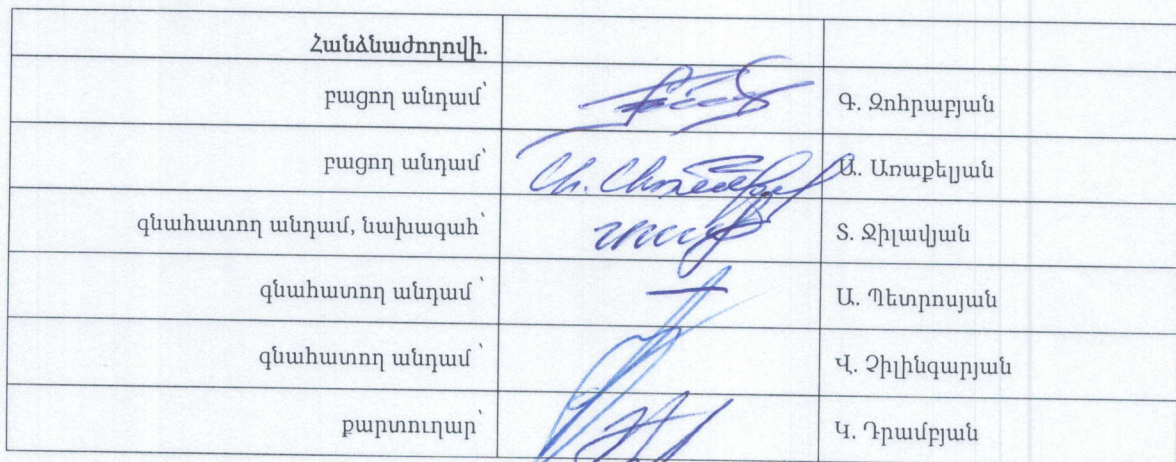 Հանձնաժողովի.
բացող անդամ՝ Գ. Զոհրաբյան
բացող անդամ՝ Ա. Առաքելյան
գնահատող անդամ, նախագահ՝ Տ. Ջիլավյան
գնահատող անդամ՝ Ա. Պետրոսյան
գնահատող անդամ՝ Վ. Չիլինգարյան
քարտուղար՝ Կ. Դրամբյան